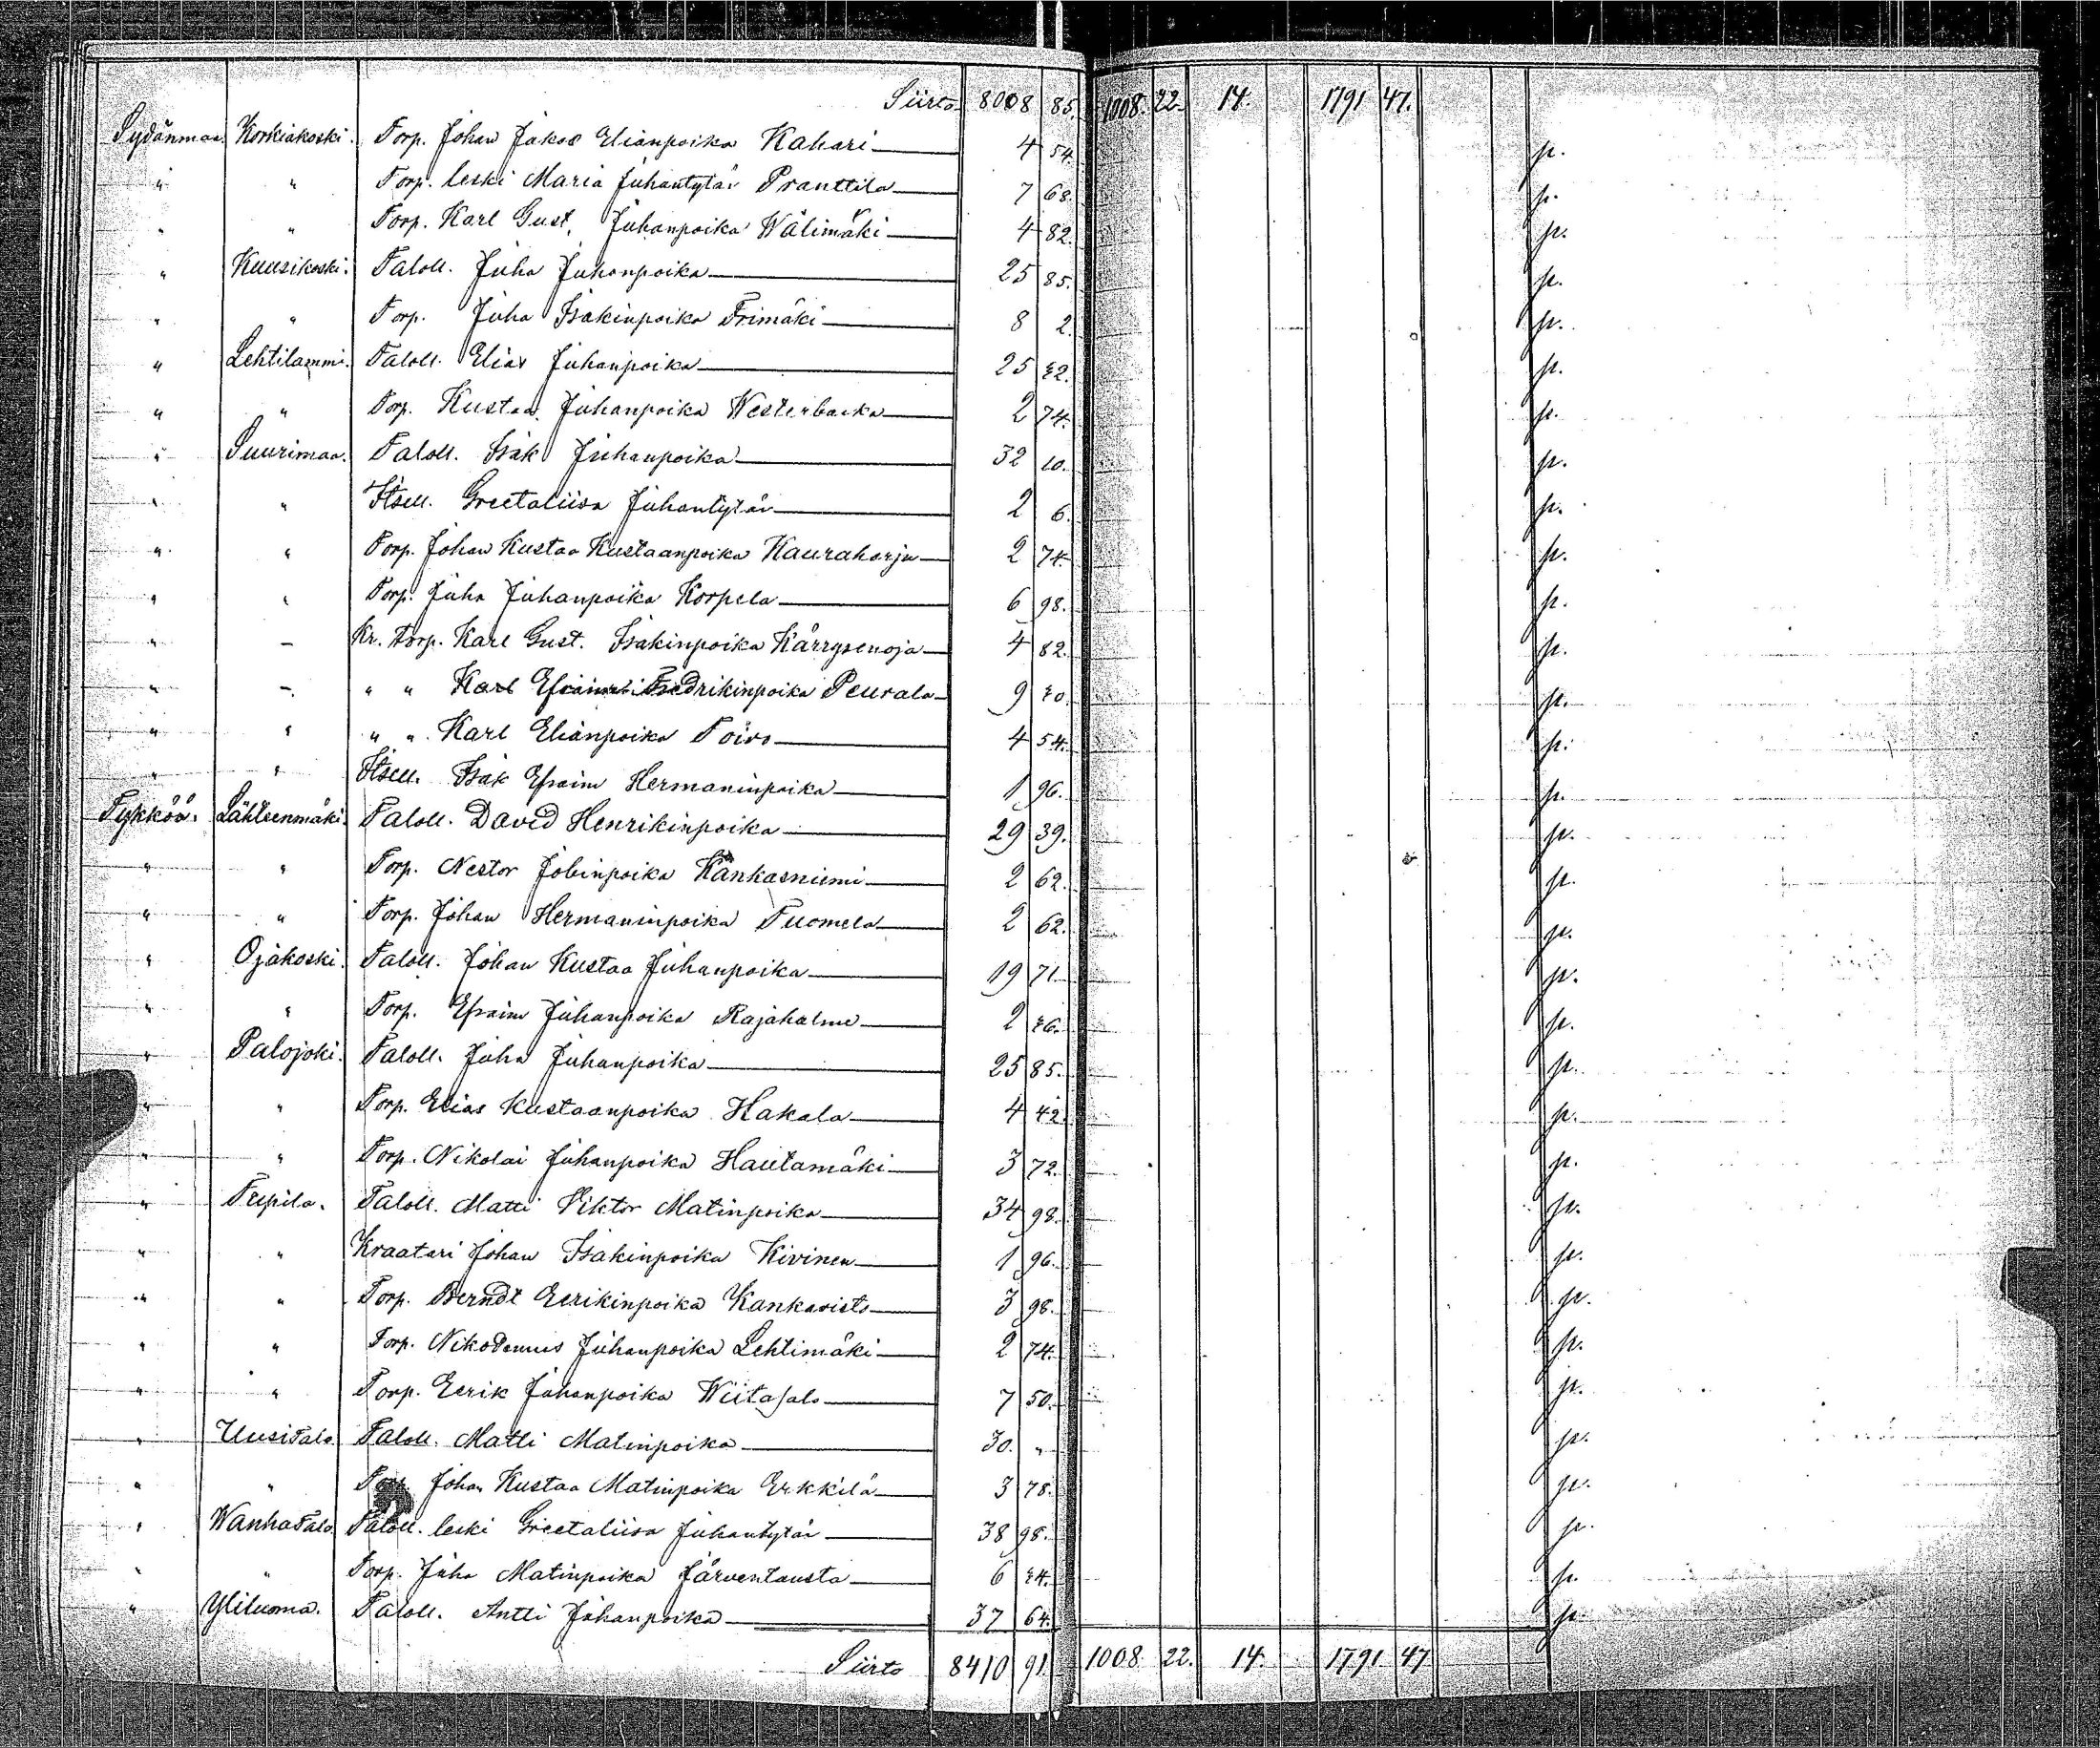 Siirto 8008 85. 1008. 22. 14. 1791 47.
Sydänmaa. Korkiakoski. Torp. Johan Jakob Elianpoika Kahari 4 54. p.
" " Torp. leski Maria Juhantytär Pranttila 7 68. p.
" " Torp. Karl Gust. Juhanpoika Wälimäki 4 82. p.
" Kuusikoski. Taloll. Juha Juhanpoika 25 85. p.
" " Torp. Juha Isakinpoika Trimäki 8 2. p.
" Lehtilammi. Taloll. Elias Juhanpoika 25 22. p.
" " Torp. Kustaa Juhanpoika Westerbacka 2 74. p.
" Suurimaa. Taloll. Isak Juhanpoika 32 10. p.
" " Itsell. Greetaliisa Juhantytär 2 6. p.
" " Torp. Johan Kustaa Kustaanpoika Kauraharju 2 74. p.
" " Torp. Juha Juhanpoika Korpela 6 98. p.
" – Kr. torp. Karl Gust. Isakinpoika Kärrysenoja 4 82. p.
" – " " Karl Fredrikinpoika Peurala 9 20. p.
" " " " Karl Elianpoika Toivo 4 54. p.
" " Itsell. Isak Efraim Hermaninpoika 1 96. p.
Tykköö. Lähteenmäki. Taloll. David Henrikinpoika 29 39. p.
" " Torp. Nestor Jobinpoika Kankasniemi 2 62. p.
" " Torp. Johan Hermaninpoika Tuomela 2 62. p.
" Ojakoski. Taloll. Johan Kustaa Juhanpoika 19 71. p.
" " Torp. Efraim Juhanpoika Rajahalme 2 26. p.
" Palojoki. Taloll. Juha Juhanpoika 25 85. p.
" " Torp. Elias Kustaanpoika Hakala 4 42. p.
" " Torp. Nikolai Juhanpoika Hautamäki 3 72. p.
" Trepila. Taloll. Matti Viktor Matinpoika 34 98. p.
" " Kraatari Johan Isakinpoika Kivinen 1 96. p.
" " Torp. Berndt Eerikinpoika Kankaristo 3 98. p.
" " Torp. Nikodemus Juhanpoika Lehtimäki 2 74. p.
" " Torp. Eerik Juhanpoika Wiitasalo 7 50. p.
" Uusitalo. Taloll. Matti Matinpoika 30. " p.
" " Torp. Johan Kustaa Matinpoika Erkkilä 3 78. p.
" Wanhatalo. Taloll. leski Greetaliisa Juhantytär 38 98. p.
" " Torp. Juha Matinpoika Järventausta 6 24. p.
" Yliluoma. Taloll. Antti Juhanpoika 37 64. p.
Siirto 8410 91. 1008. 22. 14. 1791 47